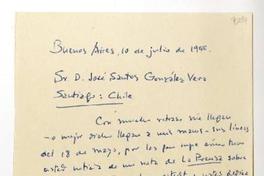 Buenos Aires, 10 de julio de 195
Sr D. José Santos González Vera
Santiago: Chile
Con mucho retraso me llegan
— o mejor dicho llegan a mis manos — sus líneas
del 18 de mayo, por las que supe
noticia de una nota de La Prensa sobre